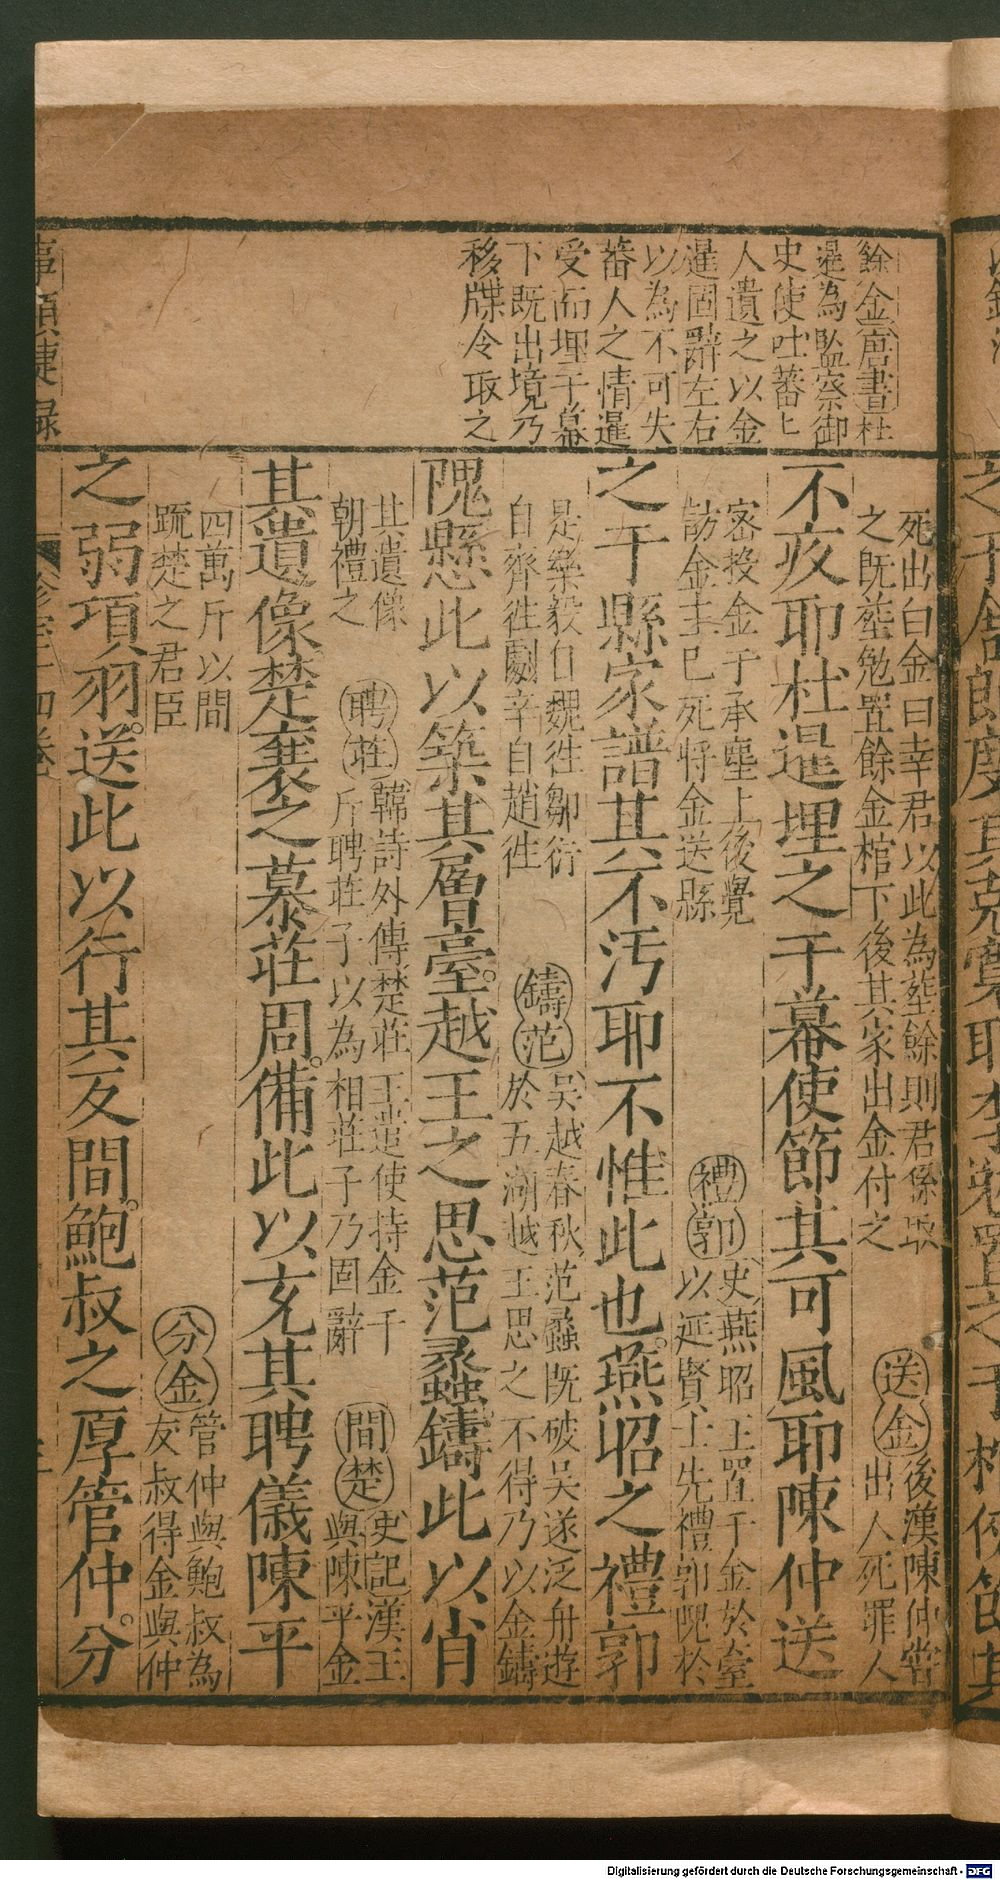 餘金唐書杜
暹為監察御
史使吐蕃匕
人遺之以金
暹固辭左右
以為不可失
蕃人之情暹
受而埋于幕
下既出境乃
移牒令取之
死出白金曰幸君以此為塟餘則君係取
之既塟勉置餘金棺下後其家出金付之
送金
後漢陳仲嘗
出人死罪人
不疚耶杜暹埋之于幕使節其可風耶陳仲送
密投金于承塵上後覺
訪金主已死將金送縣
禮郭
史燕昭王置千金於臺
以延賢士先禮郭隗於
之于縣家譜其不汚耶不惟此也燕昭之禮郭
是樂毅自魏徃鄒衍
自齊徃劇辛自趙徃
鑄范
吴越春秋范蠡既破吴遂泛舟遊
於五湖越王思之不得乃以金鑄
隗懸此以築其層臺越王之思范蠡鑄此以肖
其遺像
朝禮之
聘莊
韓詩外傳楚莊王遣使持金千
斤聘莊子以為相莊子乃固辭
間楚
史記漢王
與陳平金
其遺像楚襄之慕莊周備此以充其聘儀陳平
四萬斤以間
䟽楚之君臣
分金
管仲與鮑叔為
友叔得金與仲
之弱項羽送此以行其反間鮑叔之厚管仲分
事類捷録
Digitalisierung gefördert durch die Deutsche Forschungsgemeinschaft - DFG